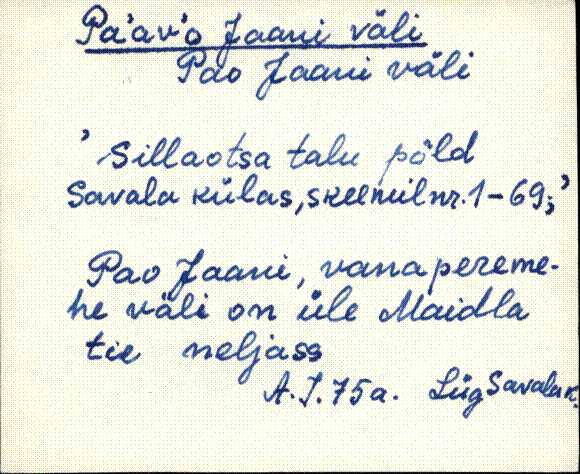 Pa'av'o Jaani väli
Pao Jaani väli
' Sillaotsa talu põld
Savala külas, skeemil nr. 1-69;'
Pao Jaani, vana pereme-
he väli on üle Maidla
tie neljass
A.J. 75a. Lüg Savala k.